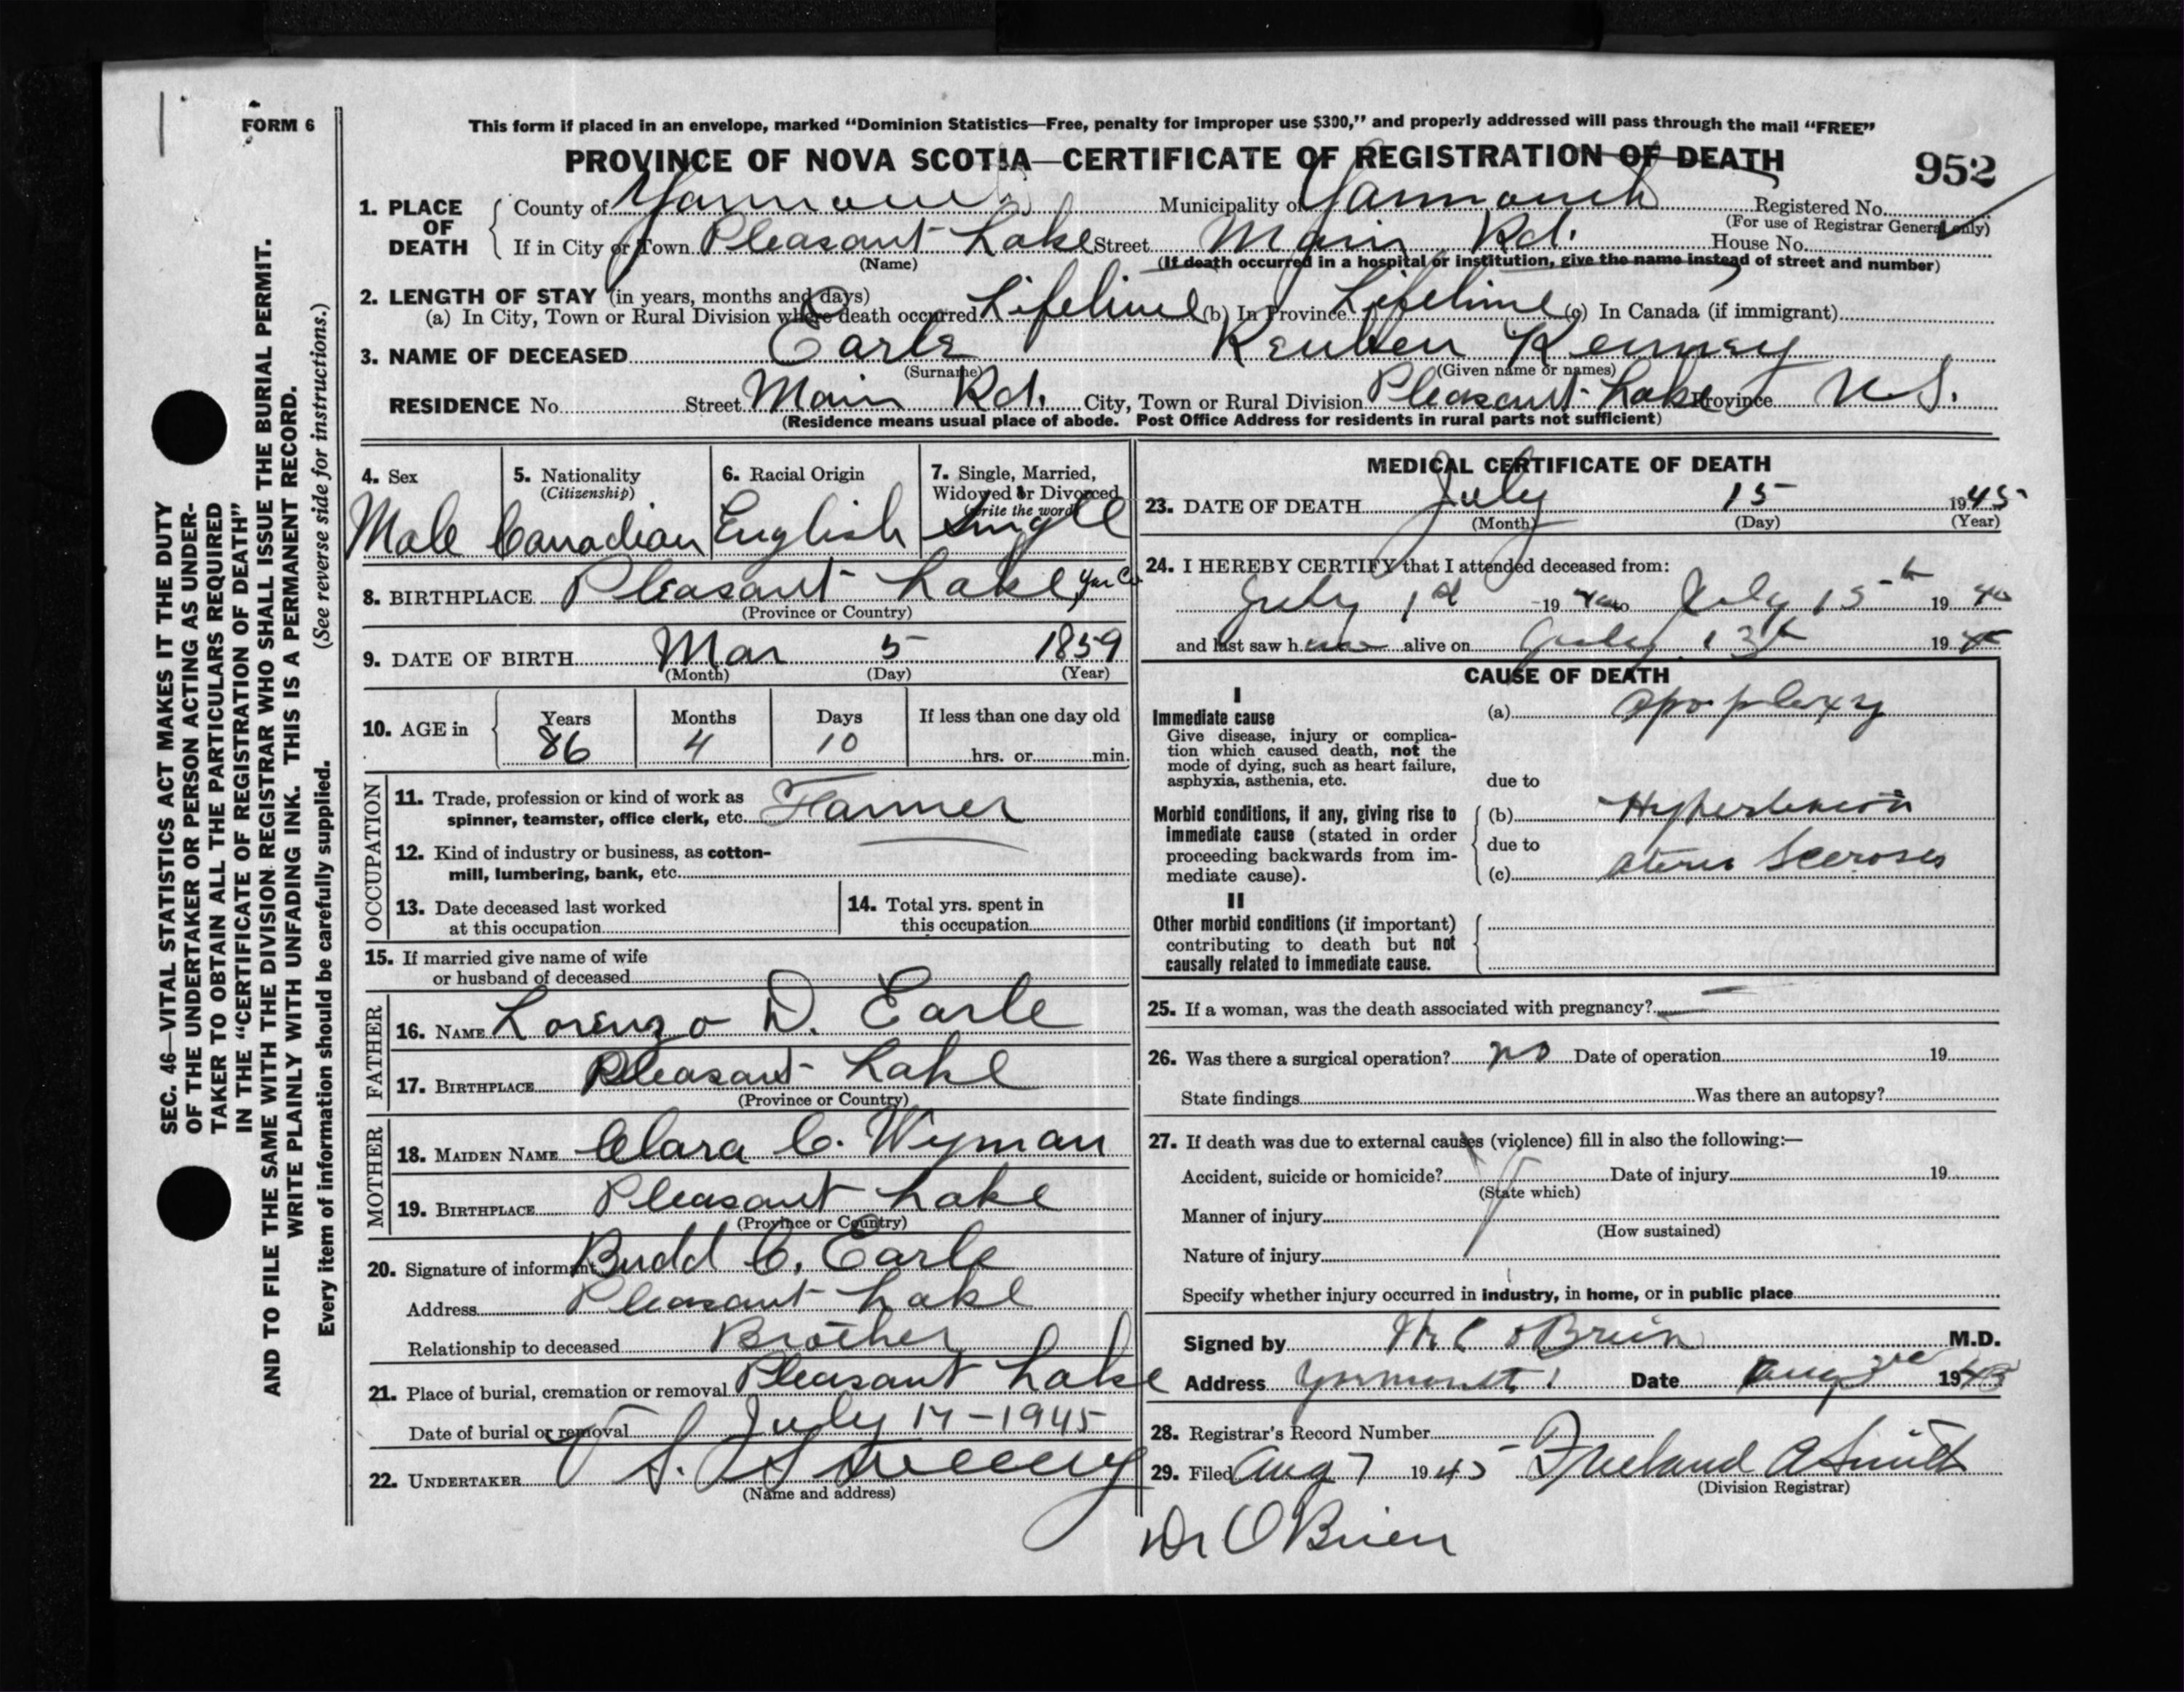 FORM 6
This form if placed in an envelope, marked “Dominion Statistics—Free, penalty for improper use $300,” and properly addressed will pass through the mail “FREE”
PROVINCE OF NOVA SCOTIA—CERTIFICATE OF REGISTRATION OF DEATH
952
1. PLACE OF DEATH
County of Yarmouth Municipality of Yarmouth Registered No.
(For use of Registrar General only)
If in City or Town Pleasant Lake Street Main Rd. House No.
(Name) (If death occurred in a hospital or institution, give the name instead of street and number)
2. LENGTH OF STAY (in years, months and days)
(a) In City, Town or Rural Division where death occurred Lifetime (b) In Province Lifetime (c) In Canada (if immigrant)
3. NAME OF DECEASED Earle Reuben Kenney
(Surname) (Given name or names)
RESIDENCE No. Street Main Rd. City, Town or Rural Division Pleasant Lake Province N.S.
(Residence means usual place of abode. Post Office Address for residents in rural parts not sufficient)
4. Sex
Male
5. Nationality
(Citizenship)
Canadian
6. Racial Origin
English
7. Single, Married,
Widowed or Divorced
(write the word)
Single
8. BIRTHPLACE Pleasant Lake, Yar Co
(Province or Country)
9. DATE OF BIRTH Mar 5 1859
(Month) (Day) (Year)
10. AGE in
Years Months Days If less than one day old
86 4 10 hrs. or min.
OCCUPATION
11. Trade, profession or kind of work as
spinner, teamster, office clerk, etc. Farmer
12. Kind of industry or business, as cotton-
mill, lumbering, bank, etc.
13. Date deceased last worked
at this occupation
14. Total yrs. spent in
this occupation
15. If married give name of wife
or husband of deceased
FATHER
16. NAME Lorenzo D. Earle
17. BIRTHPLACE Pleasant Lake
(Province or Country)
MOTHER
18. MAIDEN NAME Clara C. Wyman
19. BIRTHPLACE Pleasant Lake
(Province or Country)
20. Signature of informant Budd C. Earle
Address Pleasant Lake
Relationship to deceased Brother
21. Place of burial, cremation or removal Pleasant Lake
Date of burial or removal July 17-1945
22. UNDERTAKER Sweeny
(Name and address)
MEDICAL CERTIFICATE OF DEATH
23. DATE OF DEATH July 15 1945
(Month) (Day) (Year)
24. I HEREBY CERTIFY that I attended deceased from:
July 1st 19 to July 15th 19
and last saw h alive on July 13th 19
CAUSE OF DEATH
I
Immediate cause
Give disease, injury or complica-
tion which caused death, not the
mode of dying, such as heart failure,
asphyxia, asthenia, etc.
(a) apoplexy
due to
Morbid conditions, if any, giving rise to
immediate cause (stated in order
proceeding backwards from im-
mediate cause).
(b) Hypertension
due to
(c) Scerosis
II
Other morbid conditions (if important)
contributing to death but not
causally related to immediate cause.
25. If a woman, was the death associated with pregnancy? —
26. Was there a surgical operation? no Date of operation 19
State findings Was there an autopsy?
27. If death was due to external causes (violence) fill in also the following:—
Accident, suicide or homicide? Date of injury 19
(State which)
Manner of injury
(How sustained)
Nature of injury
Specify whether injury occurred in industry, in home, or in public place
Signed by O'Brien M.D.
Address Yarmouth Date Aug 19
28. Registrar's Record Number
29. Filed Aug 7 1945 Freeland A Smith
(Division Registrar)
Dr O'Brien
SEC. 46—VITAL STATISTICS ACT MAKES IT THE DUTY
OF THE UNDERTAKER OR PERSON ACTING AS UNDER-
TAKER TO OBTAIN ALL THE PARTICULARS REQUIRED
IN THE “CERTIFICATE OF REGISTRATION OF DEATH”
AND TO FILE THE SAME WITH THE DIVISION REGISTRAR WHO SHALL ISSUE THE BURIAL PERMIT.
WRITE PLAINLY WITH UNFADING INK. THIS IS A PERMANENT RECORD.
Every item of information should be carefully supplied. (See reverse side for instructions.)